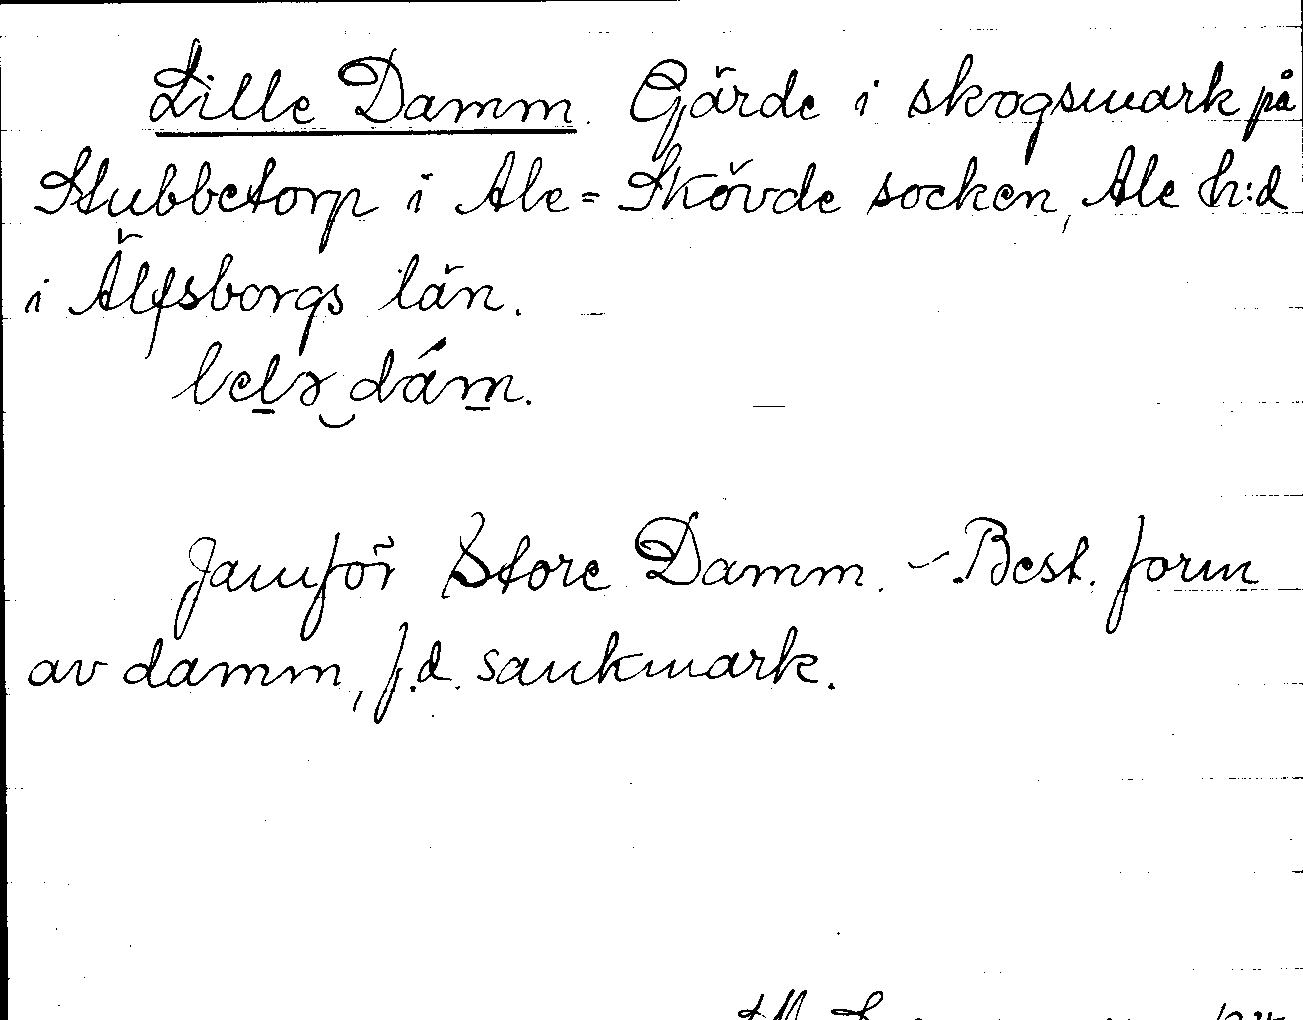 Lille Damm. Gärde i skogsmark på
Stubbetorp i Ale=Skövde socken, Ale h:d
i Älfsborgs län.
lelə dám.
Jämför Store Damm. – Best. form
av damm, f.d. sankmark.